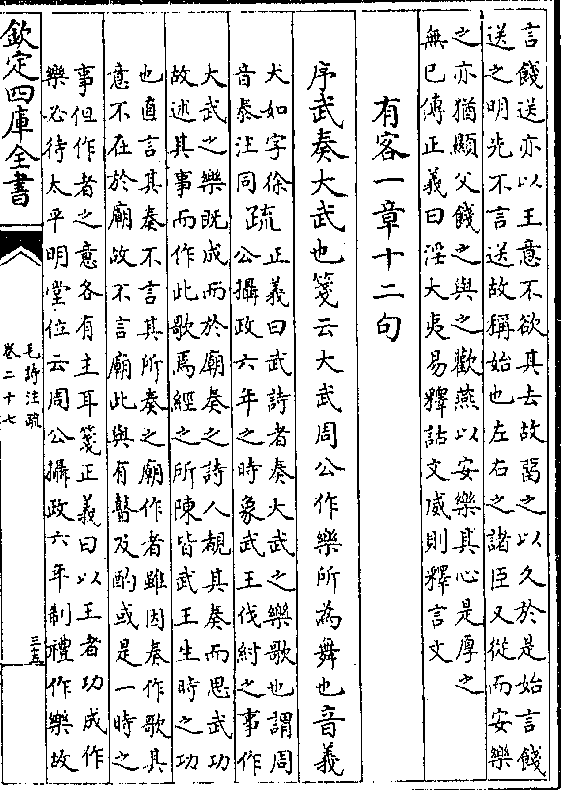 言餞送亦以王意不欲其去故留之以久於是始言餞
送之明先不言送故稱始也左右之諸臣又從而安樂
之亦猶顯父餞之與之歡燕以安樂其心是厚之
無已傳正義曰淫大夷易釋詁文威則釋言文
有客一章十二句
序武奏大武也箋云大武周公作樂所為舞也音義
大如字徐
音泰注同
疏
正義曰武詩者奏大武之樂歌也謂周
公攝政六年之時象武王伐紂之事作
大武之樂既成而於廟奏之詩人覩其奏而思武功
故述其事而作此歌焉經之所陳皆武王生時之功
也直言其奏不言其所奏之廟作者雖因奏作歌其
意不在於廟故不言廟此與有瞽及酌或是一時之
事但作者之意各有主耳箋正義曰以王者功成作
樂必待太平明堂位云周公攝政六年制禮作樂故
欽定四庫全書
毛詩注疏
卷二十七
三五